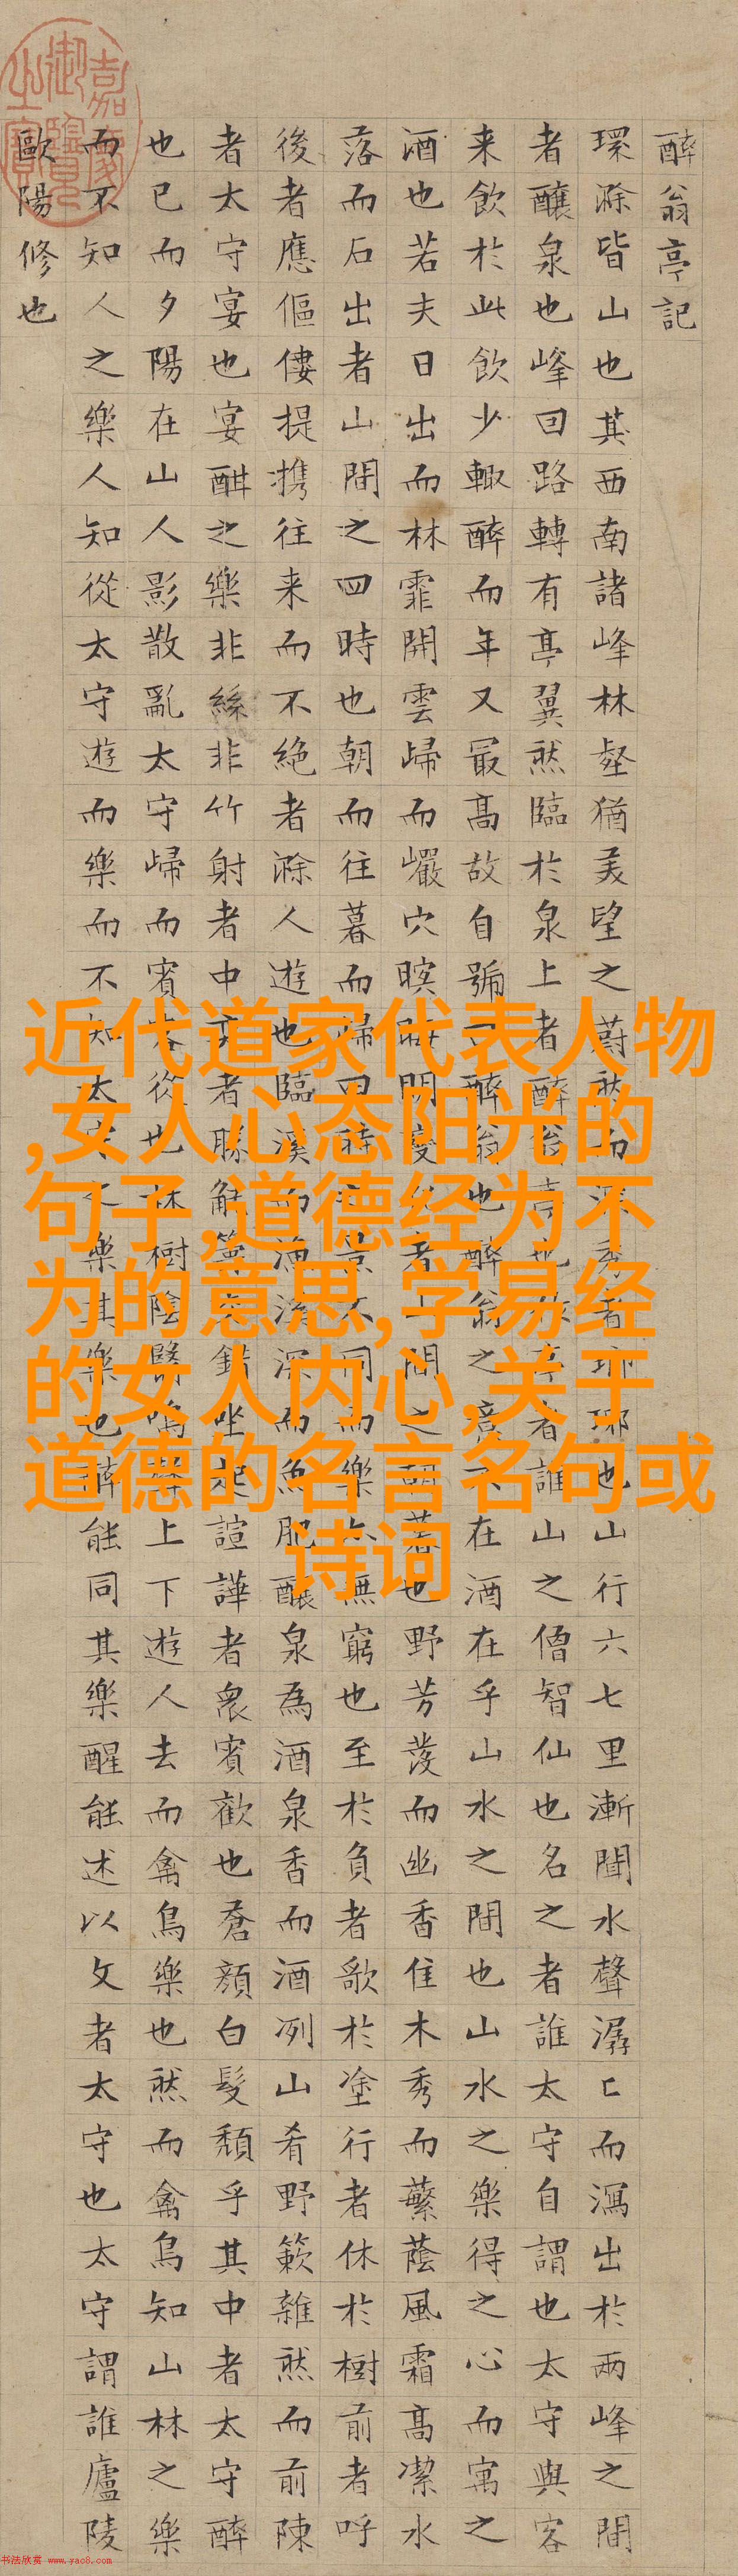 醉翁亭記
環滁皆山也其西南諸峰林壑猶美望之蔚然而深秀者瑯琊也山行六七里漸聞水聲潺〻而瀉出於兩峰之間
者釀泉也峰回路轉有亭翼然臨於泉上者醉翁亭也作亭者誰山之僧智仙也名之者誰太守自謂也太守與客
来飲於此飲少輙醉而年又最高故自號曰醉翁也醉翁之意不在酒在乎山水之間也山水之樂得之心而寓之
酒也若夫日出而林霏開雲歸而巖穴暝晦明變化者山間之朝暮也野芳發而幽香佳木秀而蘩蔭風霜高潔水
落而石出者山間之四時也朝而往暮而歸四時之景不同而樂亦無窮也至於負者歌於塗行者休於樹前者呼
後者應傴僂提携往来而不絕者滁人遊也臨溪而漁溪深而魚肥釀泉為酒泉香而酒冽山肴野簌雜然而前陳
者太守宴也宴酣之樂非絲非竹射者中弈者勝觥籌交錯坐起諠譁者衆賓歡也蒼顏白髮頹乎其中者太守醉
也已而夕陽在山人影散亂太守歸而賓客從也林樹陰翳鳴聲上下遊人去而禽鳥樂也然而禽鳥知山林之樂
而不知人之樂人知從太守遊而樂而不知太守之樂其樂也醉能同其樂醒能述以文者太守也太守謂誰廬陵
歐陽修也
嘉慶御覽之寶
近代道家代表人物
,女人心态阳光的
句子,道德经为不
为的意思,学易经
的女人内心,关于
道德的名言名句或
诗词
书法欣赏 www.yac8.com